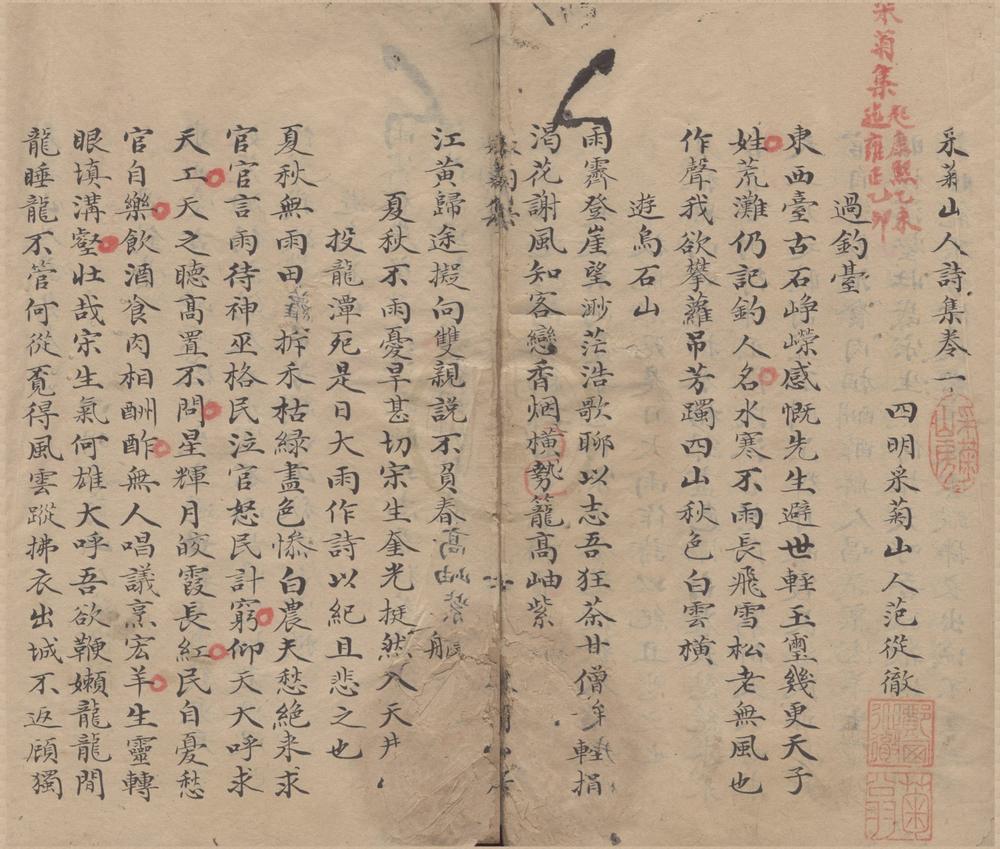 采菊集
起康熙乙未
迄雍正乙卯
采菊山人詩集卷一
四明采菊山人范從徹
過釣臺
東西臺古石崢嶸感慨先生避世輕玉璽幾更天子
姓荒灘仍記釣人名水寒不雨長飛雪松老無風也
作聲我欲攀蘿吊芳躅四山秋色白雲橫
遊烏石山
雨霽登崖望渺茫浩歌聊以志吾狂茶甘僧牟輕捐
渴花謝風知客戀香烟橫勢籠高岫紫
江黃歸途擬向雙親說不負春高岫紫
夏秋不雨憂旱甚切宋生奎光挺然入天井
投龍潭死是日大雨作詩以紀且悲之也
夏秋無雨田龜拆禾枯綠盡色慘白農夫愁絕来求
官官言雨待神巫格民泣官怒民計窮仰天大呼求
天工天之聽高置不問星輝月皎霞長紅民自憂愁
官自樂飲酒食肉相酬酢無人唱議烹宏羊生靈轉
眼填溝壑壯哉宋生氣何雄大呼吾欲鞭嬾龍龍間
龍睡龍不管何從覓得風雲蹤拂衣出城不返顧獨